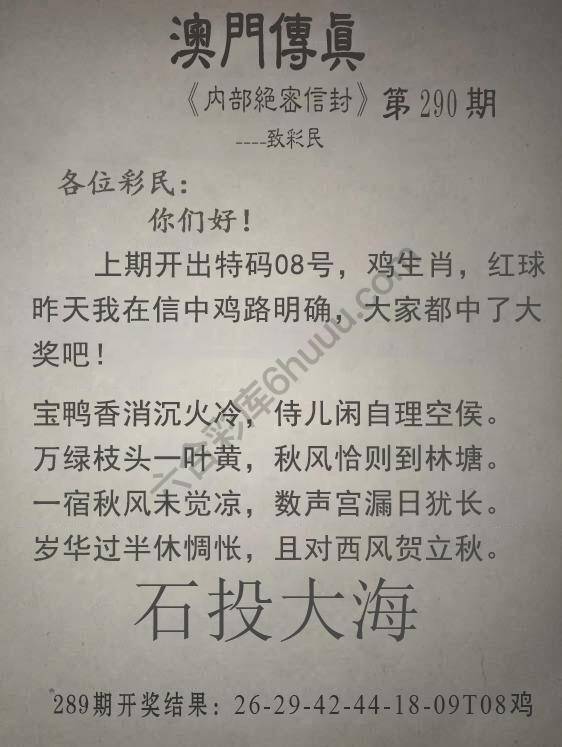 澳門傳眞
《内部絕密信封》第290期
----致彩民
各位彩民：
你们好！
上期开出特码08号，鸡生肖，红球
昨天我在信中鸡路明确，大家都中了大
奖吧！
宝鸭香消沉火冷，侍儿闲自理空侯。
万绿枝头一叶黄，秋风恰则到林塘。
一宿秋风未觉凉，数声宫漏日犹长。
岁华过半休惆怅，且对西风贺立秋。
石投大海
289期开奖结果：26-29-42-44-18-09T08鸡
六合彩库6huuu.com